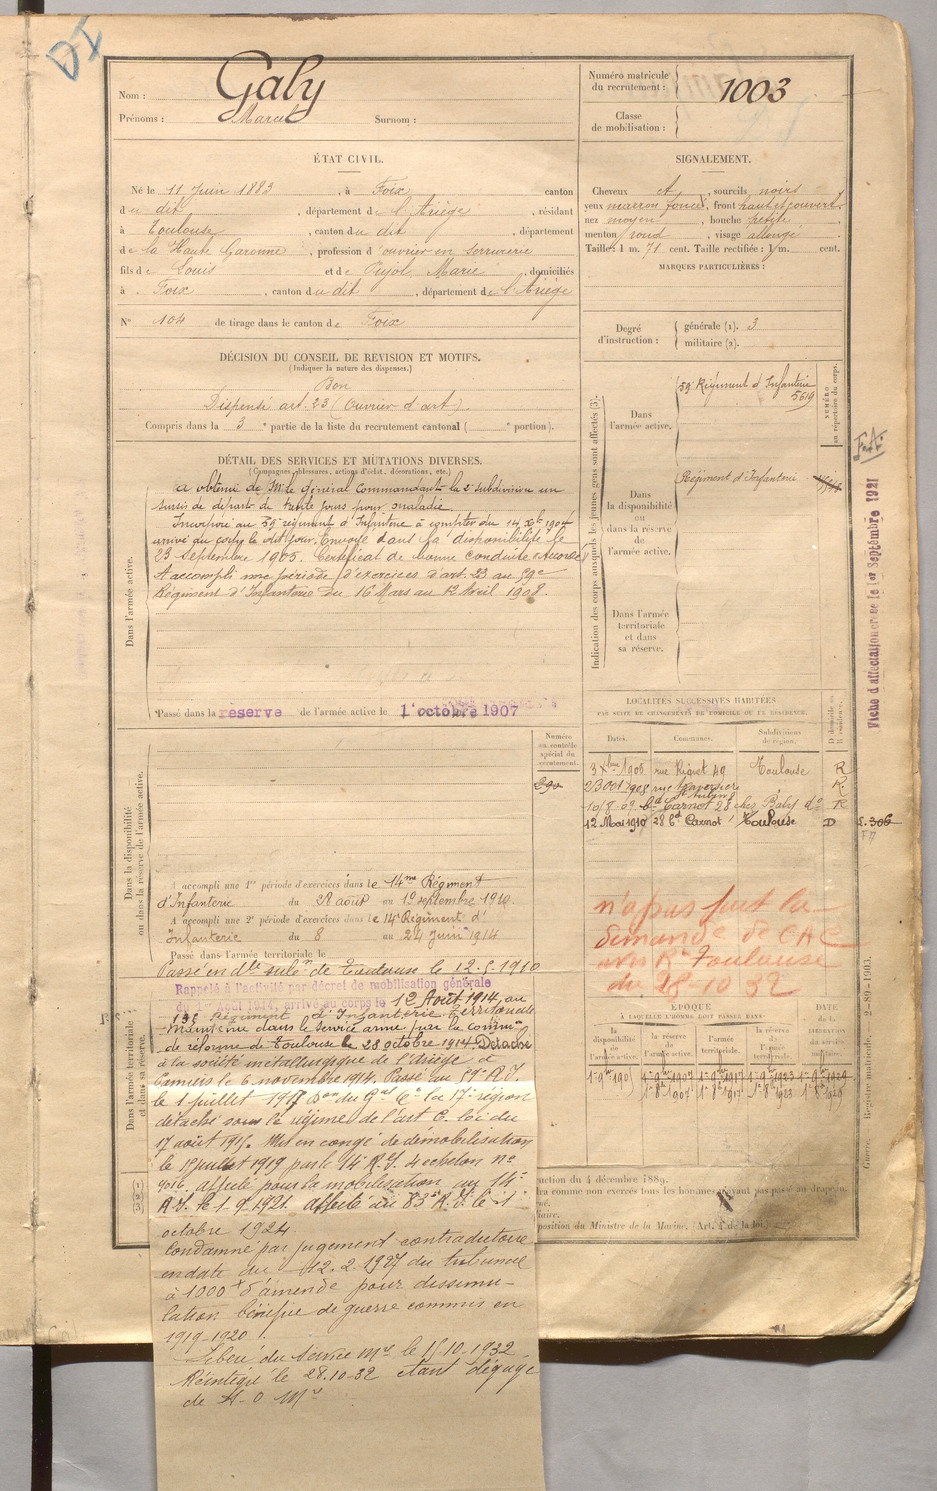 DI
Nom : Galy
Prénoms : Marcel Surnom :
Numéro matricule du recrutement : 1003
Classe de mobilisation :
ÉTAT CIVIL.
Né le 11 Juin 1883, à Foix canton
du dit, département de l'Ariège, résidant
à Toulouse, canton du dit, département
de la Haute Garonne, profession d'ouvrier en serrurerie
fils de Louis et de Pujol Marie, domiciliés
à Foix, canton du dit, département de l'Ariège
N° 104 de tirage dans le canton de Foix
SIGNALEMENT.
Cheveux et, sourcils noirs
yeux marron foncé, front haut et couvert
nez moyen, bouche petite
menton rond, visage allongé
Taille : 1 m. 71 cent. Taille rectifiée : 1 m. cent.
MARQUES PARTICULIÈRES :
Degré d'instruction : générale (1). 3
militaire (2).
DÉCISION DU CONSEIL DE REVISION ET MOTIFS.
(Indiquer la nature des dispenses.)
Bon
Dispensé art. 23 (Ouvrier d'art).
Compris dans la 3e partie de la liste du recrutement cantonal ( e portion).
DÉTAIL DES SERVICES ET MUTATIONS DIVERSES.
(Campagnes, blessures, actions d'éclat, décorations, etc.)
Dans l'armée active.
a obtenu de Mr le Général Commandant la 2e subdivision un
sursis de départ de trente jours pour maladie.
Incorporé au 59e régiment d'Infanterie à compter du 14 Xbre 1904
arrivé au corps le dit jour. Envoyé dans la disponibilité le
23 Septembre 1905. Certificat de bonne conduite accordé
A accompli une période d'exercices d'art. 23 au 59e
Régiment d'Infanterie du 16 Mars au 12 Avril 1908.
Passé dans la réserve de l'armée active le 1er octobre 1907
Indication des corps auxquels les jeunes gens sont affectés (3).
NUMÉRO au répertoire du corps.
Dans l'armée active.
59e Régiment d'Infanterie 5619
Dans la disponibilité ou dans la réserve de l'armée active.
Régiment d'Infanterie
Dans l'armée territoriale et dans sa réserve.
F.A.
Fiche d'affectation crée le 1er Septembre 1921
LOCALITÉS SUCCESSIVES HABITÉES
PAR SUITE DE CHANGEMENTS DE DOMICILE OU DE RÉSIDENCE.
Dates. Communes. Subdivisions de région. D domicile ou R résidence.
3 Xbre 1905 rue Riquet 49 Toulouse R
23 Oct 1908 rue Traversière St Aubin R
10/8-09 Bd Carnot 28 chez Baly do R
12 Mai 1910 28 Bd Carnot Toulouse D
Dans la disponibilité ou dans la réserve de l'armée active.
Numéro au contrôle spécial du recrutement.
290
A accompli une 1re période d'exercices dans le 14me Régiment
d'Infanterie du 28 août au 19 septembre 1910.
A accompli une 2e période d'exercices dans le 14e Régiment d'
Infanterie du 8 au 24 Juin 1914
Passé dans l'armée territoriale le
Passé en dte subn de Toulouse le 12-5-1910
n'a pas fait la
demande de CAC
avis Rt Toulouse
du 28-10 32
Dans l'armée territoriale et dans sa réserve.
Rappelé à l'activité par décret de mobilisation générale
du 1er Août 1914, arrivé au corps le 12 Août 1914, au
135e Régiment d'Infanterie Territoriale
Maintenu dans le service armé par la common
de réforme de Toulouse le 28 octobre 1914. Détaché
à la société métallurgique de l'Ariège à
Pamiers le 6 novembre 1914. Passé au 59e R.I.
le 1 juillet 1917 Don du Gal Ct la 17e région
détaché sous le régime de l'art 6. loi du
17 août 1915. Mis en congé de démobilisation
le 15 juillet 1919 par le 14 R.I. 4 echelon no
9016 affecté pour la mobilisation au 14e
R.I. le 1. 9. 1921. affecté au 83e R.I. le 1er
octobre 1924
Condamné par jugement contradictoire
en date du 12. 2. 1927 du tribunal
à 1000 f d'amende pour dissimu-
lation bénéfice de guerre commis en
1919-1920.
Libéré du service Mre le 15-10-1932
Réintégré le 28.10-32 étant dégagé
de t. O Mre
ÉPOQUE
À LAQUELLE L'HOMME DOIT PASSER DANS :
DATE de la LIBÉRATION du service militaire.
la disponibilité de l'armée active. la réserve de l'armée active. l'armée territoriale. la réserve de l'armée territoriale.
1er 9bre 190 1er 9bre 1907 1er 9bre 1917 1er 9bre 1923 1er 9bre 1929
1er 8bre 1907 1er 8bre 1917 1er 8bre 1923 1er 8bre 1929
Guerre. Registre matricule. — 2-89-1903.
uction du 4 décembre 1889.
ra comme non exercés tous les hommes n'ayant pas passé au drapeau.
position du Ministre de la Marine. (Art. 4 de la loi.)